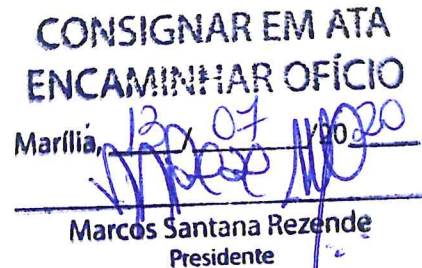 CONSIGNAR EM ATA
ENCAMINHAR OFÍCIO
Marília, 13 / 07 / 2020
Marcos Santana Rezende
Presidente